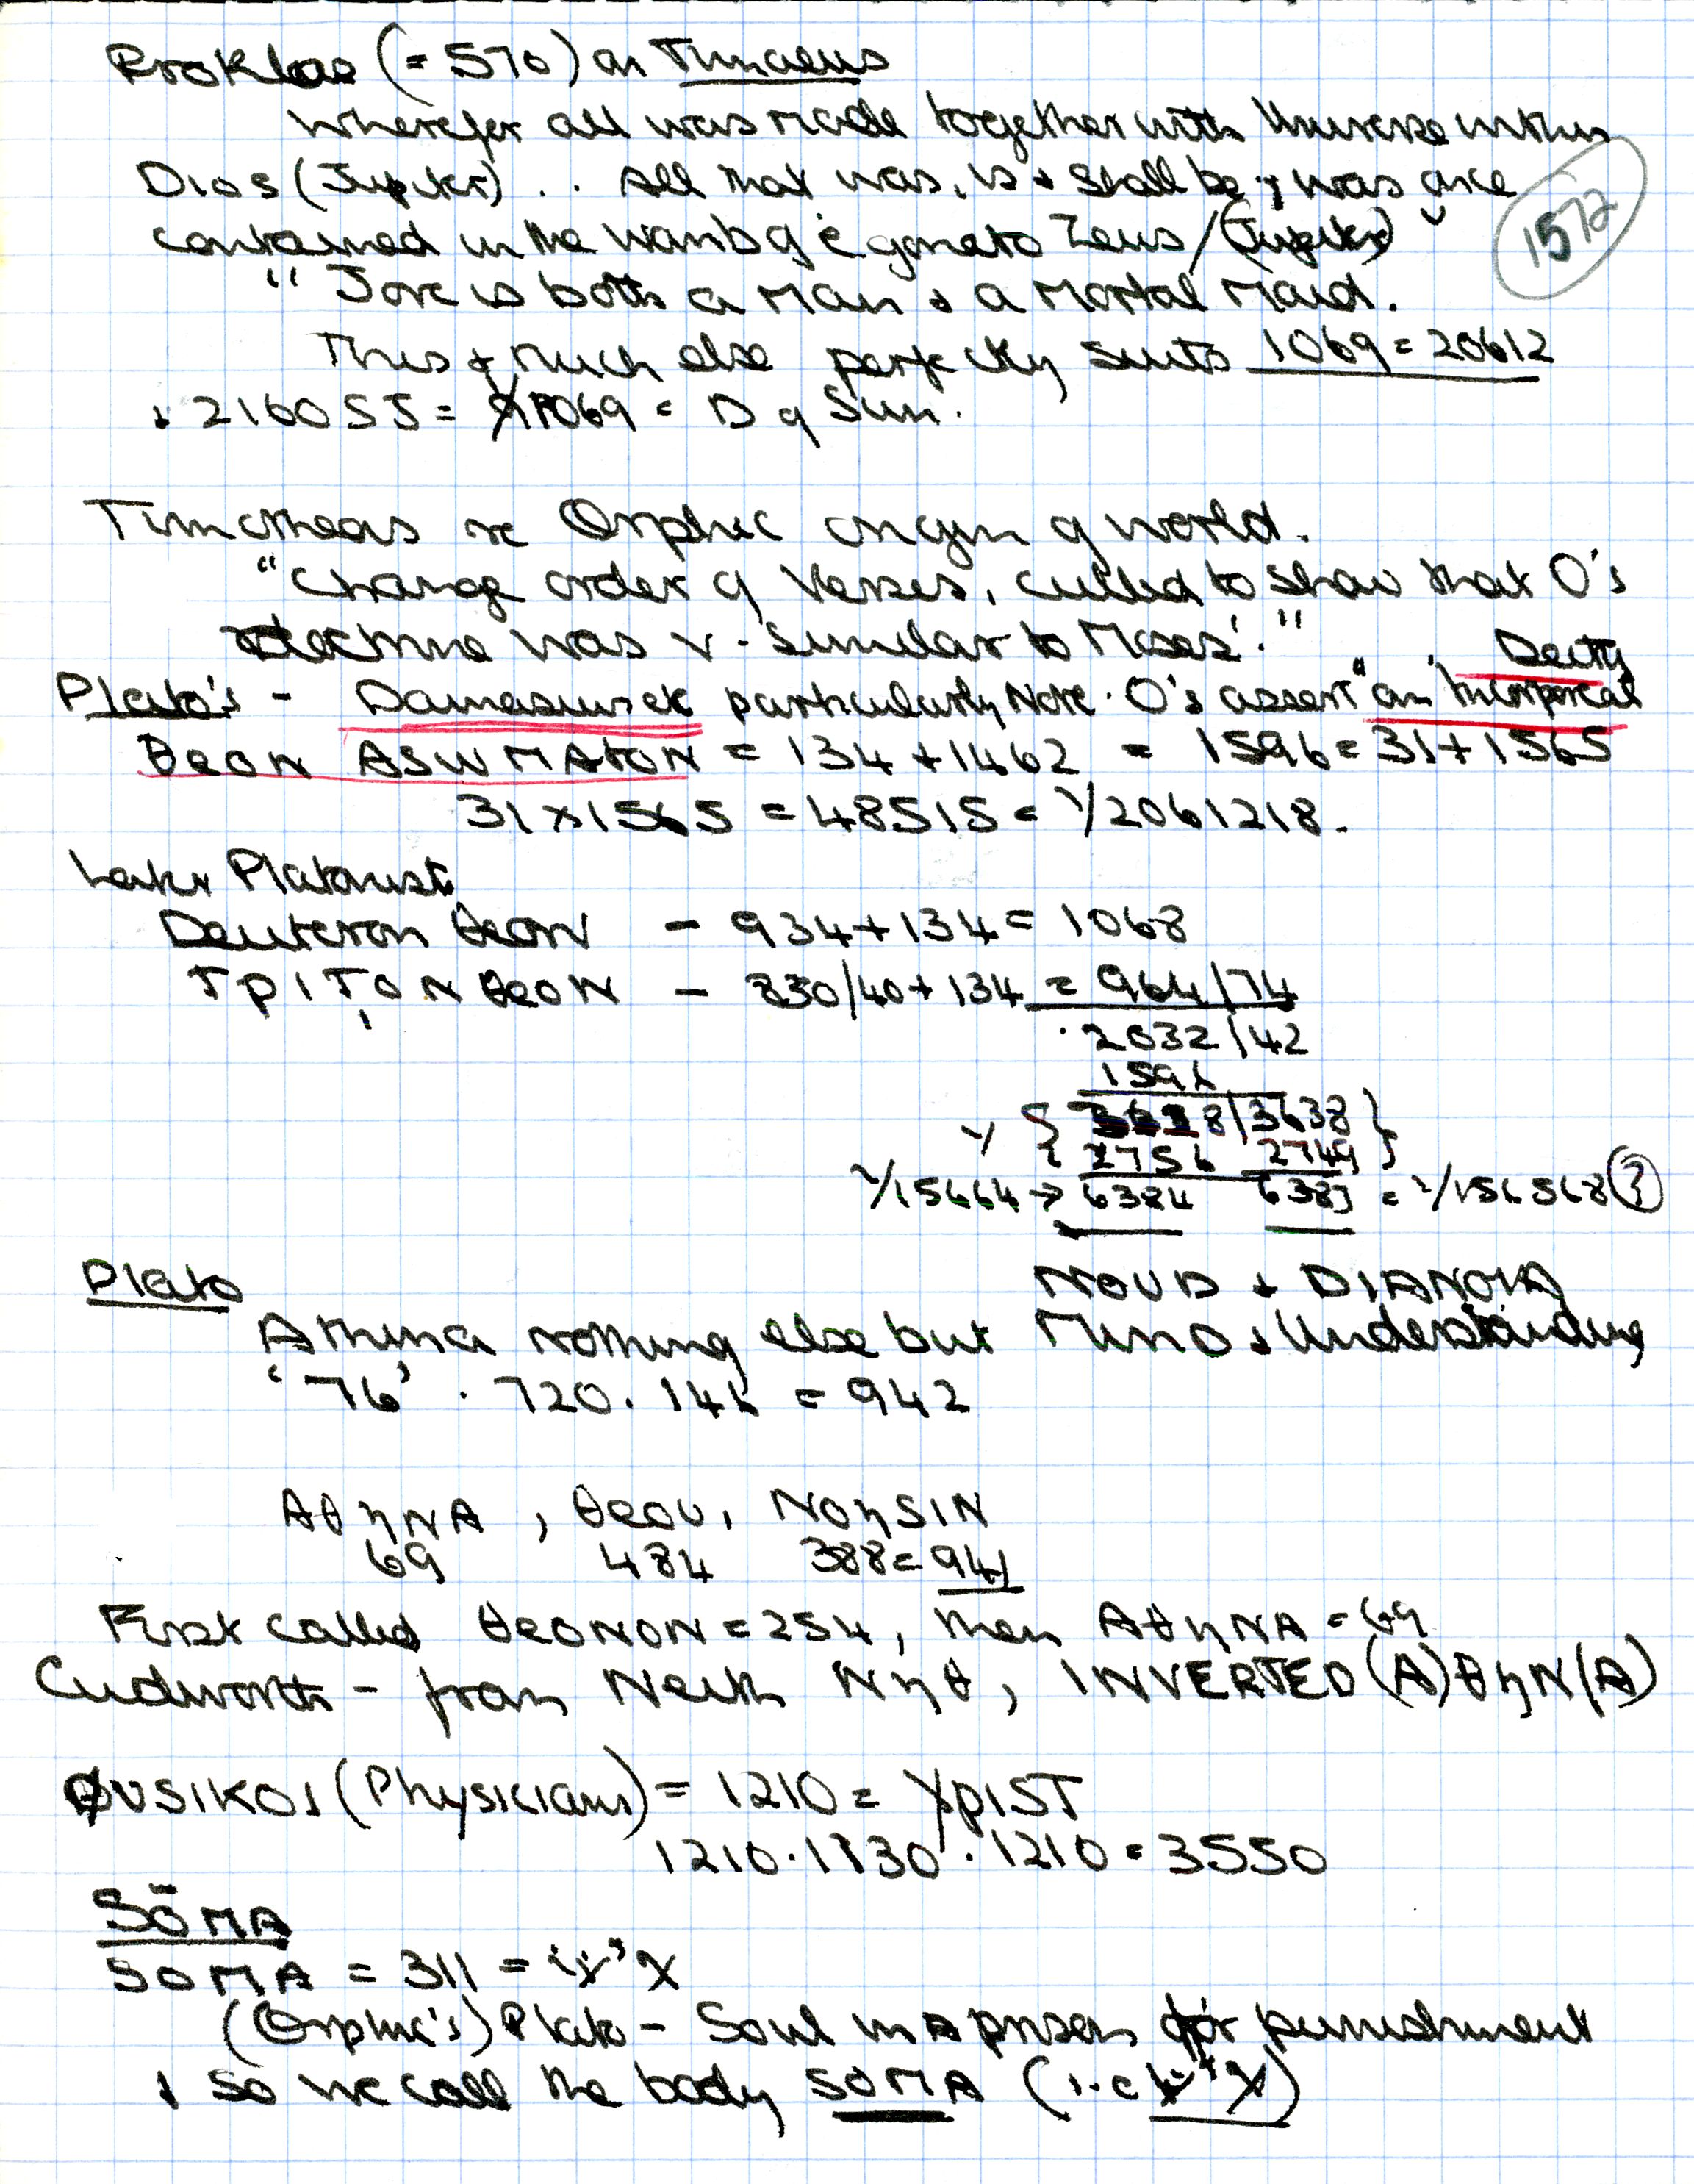 Proklos (= 570) on Timaeus
Wherefor all was made together with Universe within
Dios (Jupiter) . . All that was, is + shall be; was once
contained in the womb of e gone to Zeus / (Jupiter)"
1572
"Jove is both a Man + a Mortal Maid.
This + much else perfectly suits 1069 = 20612
+ 216055 = 1069 = D of Sun.
Timotheas re Orphic origin of world.
"Change order of Verses, culled to show that O's
doctrine was v. similar to Moses'."
Deity
Plato's - particularly Note. O's assert "an Incorporeal
θeoN ASWMAtoN = 134 + 1462 = 1596 = 31 + 1565
31 x 1565 = 48515 = √2061218.
Later Platonists
Deuteron θeoN - 934 + 134 = 1068
TpITON θeoN - 830/40 + 134 = 964/74
2032/42
1596
8/3638
2756 2749
√15664 → 6384 6383 = √156568 (?)
Plato
NOUS + DIANOIA
Athena nothing else but Mind + Understanding
'76' . 720 . 146 = 942
AθηNA, θeou, NoηSIN
69 484 388 = 941
First called θeONON = 254, then AθηNA = 69
Cudworth - from Neith Nηθ, INVERTED (A)θηN(A)
ΦUSIKOI (Physicians) = 1210 = XpIST
1210 . 1130 . 1210 = 3550
SōMA
SOMA = 311 = X
(Orphic's) Plato - Soul in a prison for punishment
+ so we call the body SOMA (i.e X)